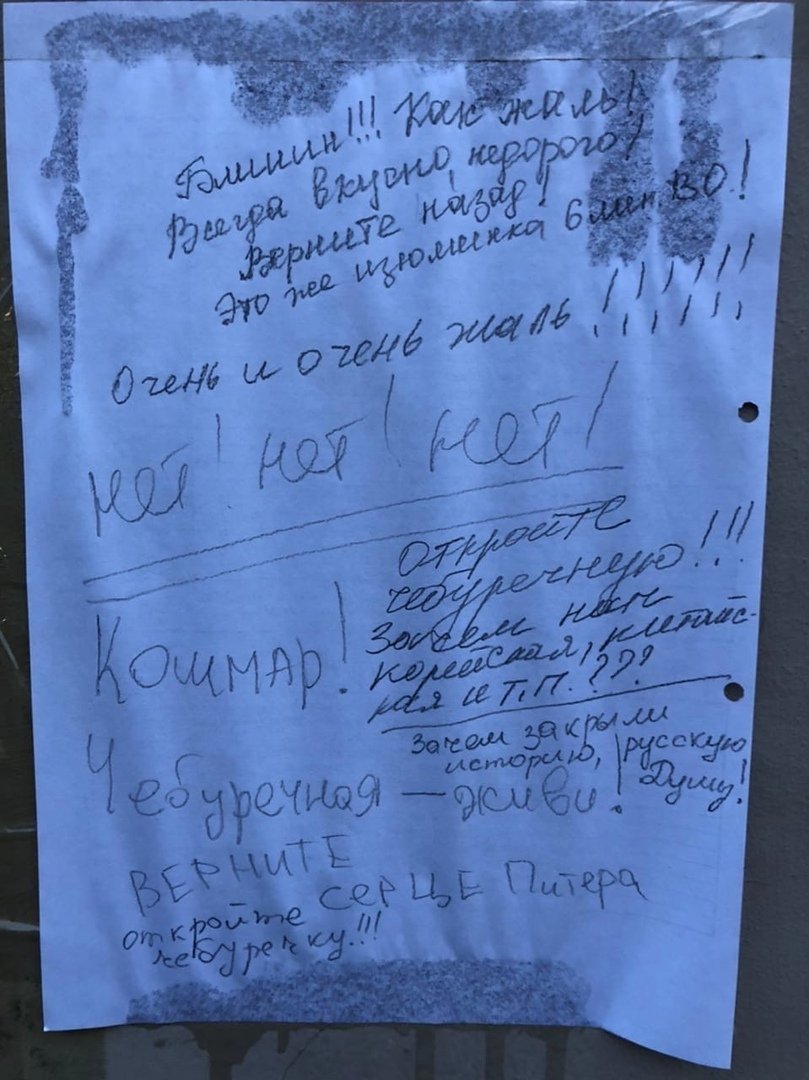 Блииин!!! Как жаль!
Всегда вкусно, недорого!
Верните назад!
Это же изюминка 6 лин. В.О.!
Очень и очень жаль!!!!!!!
Нет! Нет! Нет!
Кошмар!
Откройте
чебуречную!!!
Зачем нам
корейская, китайс-
кая и т.п.???
Зачем закрыли
историю, русскую
Думу!
Чебуречная – живи!
ВЕРНИТЕ
СЕРЦЕ Питера
откройте
чебуречку!!!